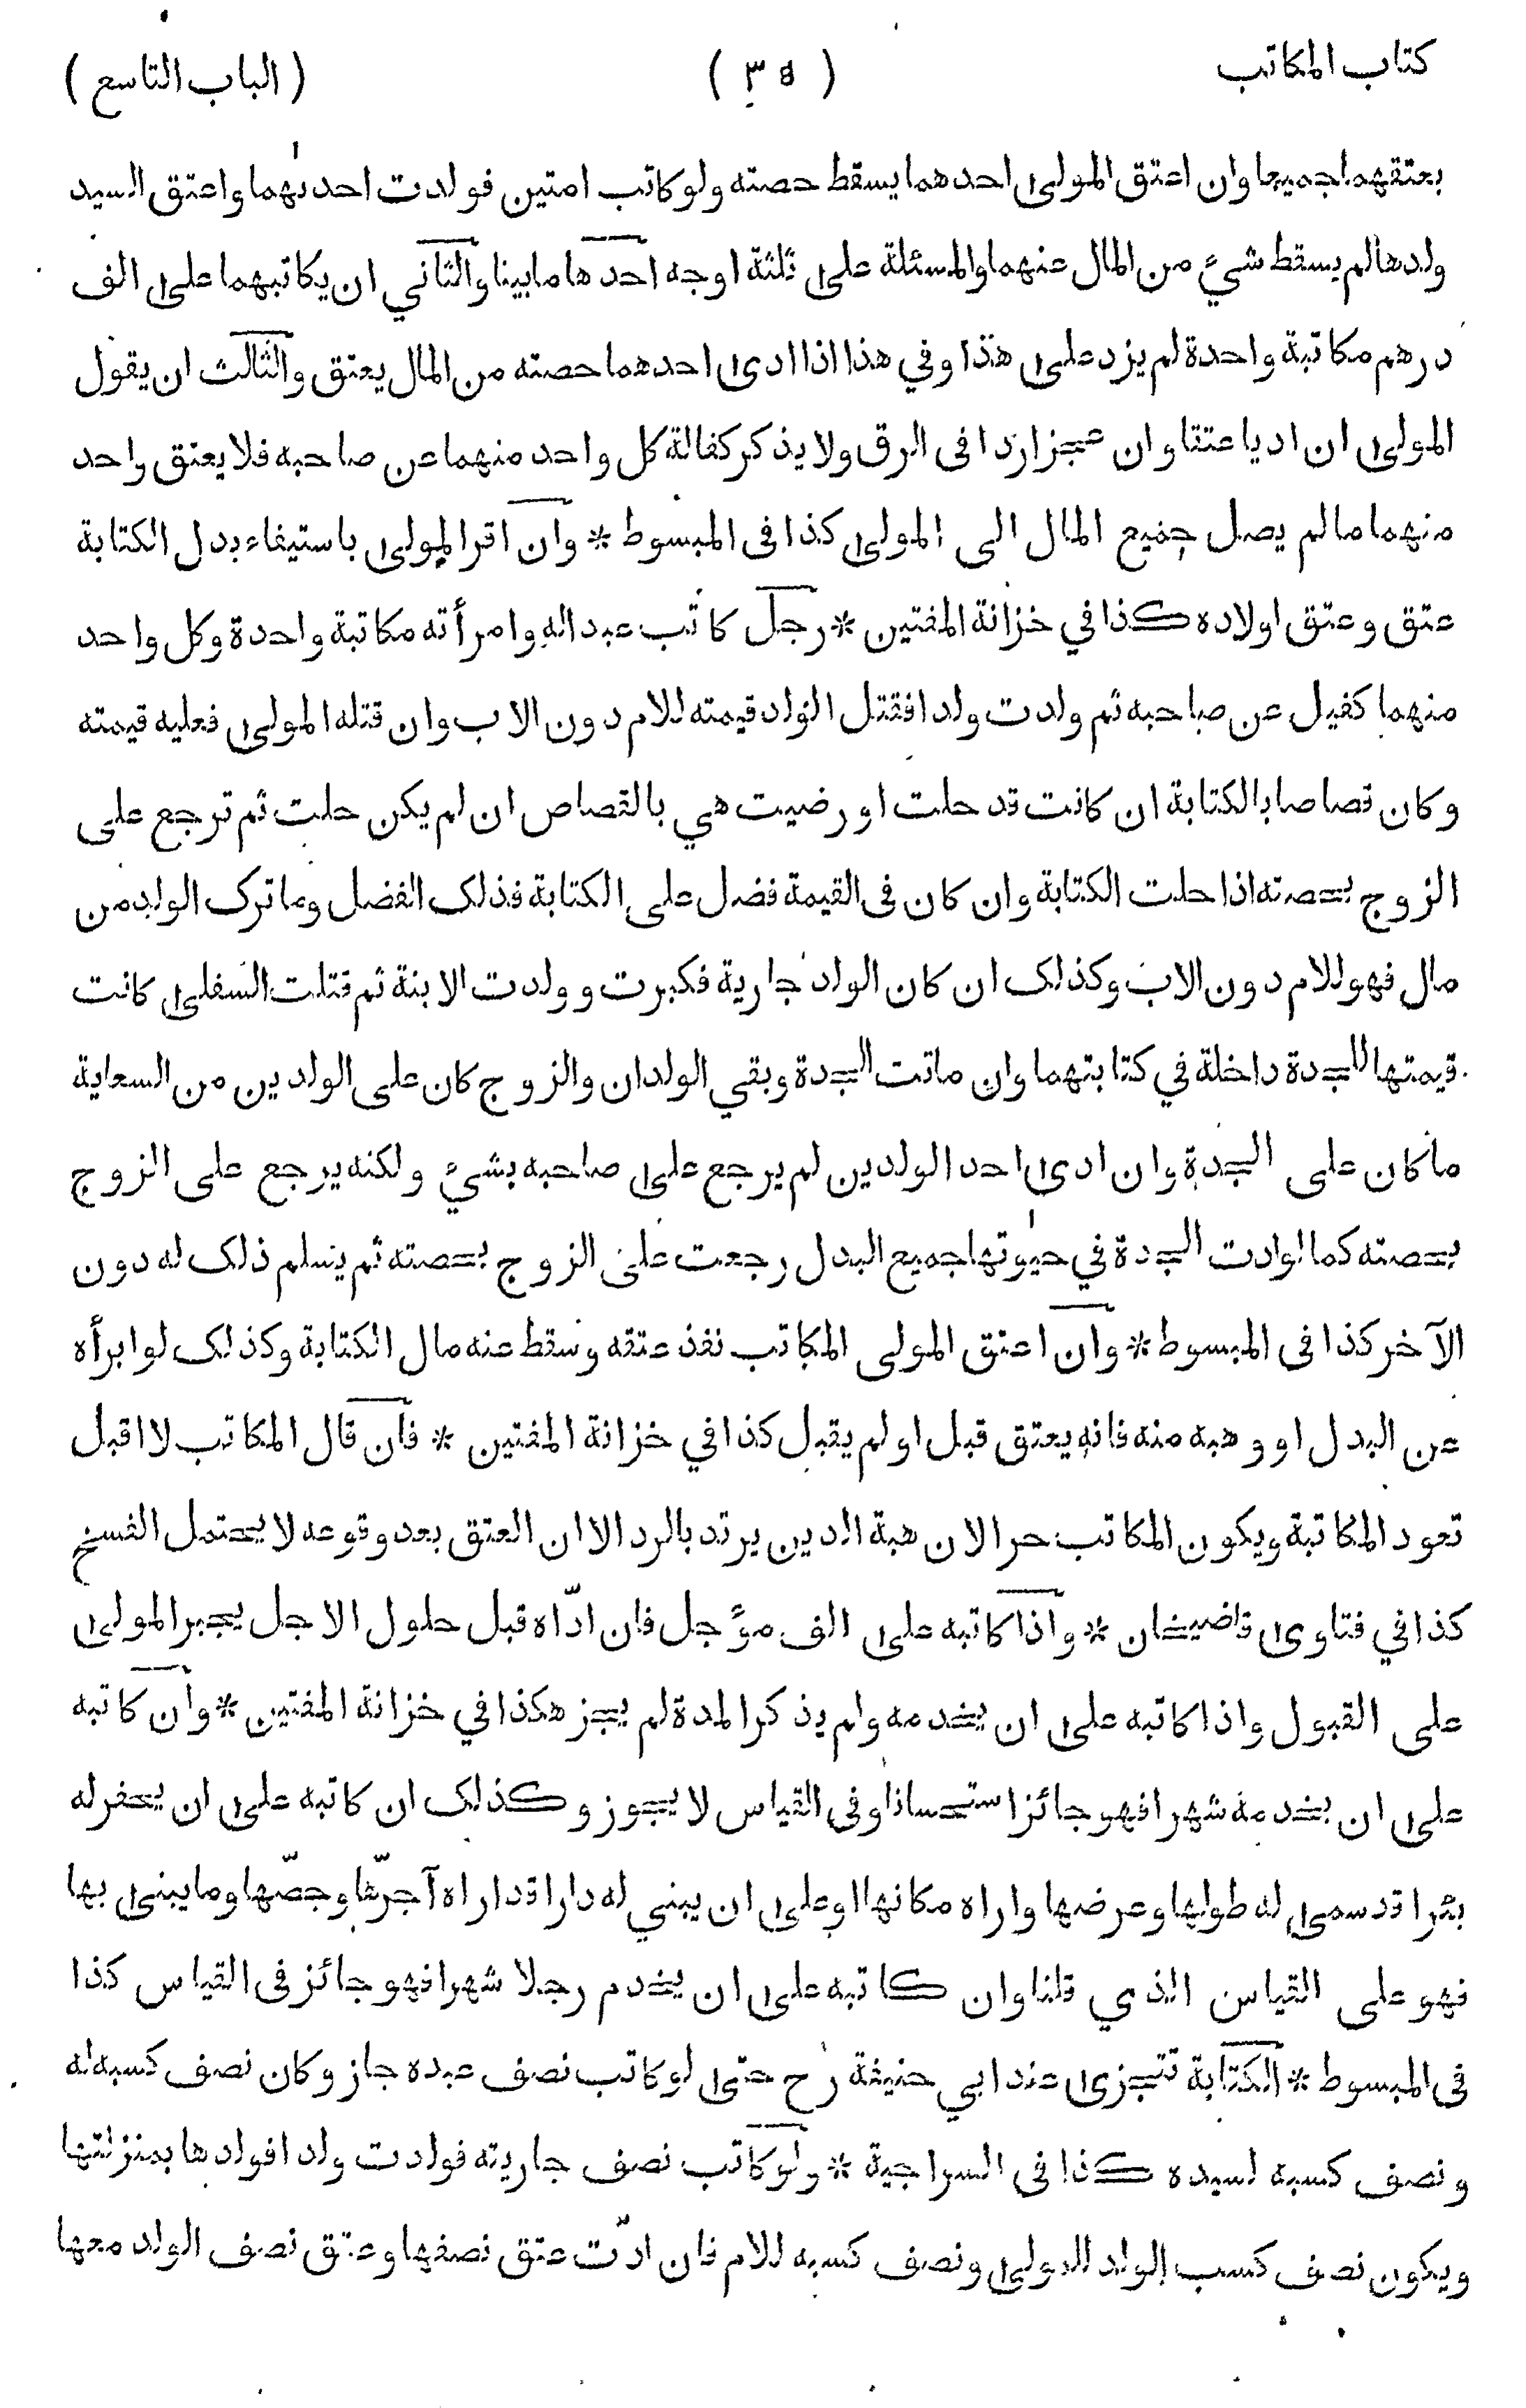 كتاب المكاتب
( ٣٥ )
( الباب التاسع )
بعتقهما جميعا وان اعتق المولى احدهما يسقط حصته ولو كاتب امتين فولدت احدٰىهما واعتق السيد
ولدها لم يسقط شيء من المال عنهما والمسئلة على ثلثة اوجه احدها ما بينا والثاني ان يكاتبهما على الف
درهم مكاتبة واحدة لم يزد على هذا وفي هذا اذا ادى احدهما حصته من المال يعتق والثالث ان يقول
المولى ان اديا عتقا وان عجزا ردا فى الرق ولا يذكر كفالة كل واحد منهما عن صاحبه فلا يعتق واحد
منهما ما لم يصل جميع المال الى المولى كذا فى المبسوط * وان اقر المولى باستيفاء بدل الكتابة
عتق وعتق اولاده كذا في خزانة المفتين * رجل كاتب عبداله وامرأته مكاتبة واحدة وكل واحد
منهما كفيل عن صاحبه ثم ولدت ولدا فقتل الولد قيمته للام دون الاب وان قتله المولى فعليه قيمته
وكان قصاصا بالكتابة ان كانت قد حلت او رضيت هي بالقصاص ان لم يكن حلت ثم ترجع على
الزوج بحصته اذا حلت الكتابة وان كان فى القيمة فضل على الكتابة فذلك الفضل وما ترك الولد من
مال فهو للام دون الاب وكذلك ان كان الولد جارية فكبرت وولدت الابنة ثم قتلت السفلى كانت
قيمتها للجدة داخلة في كتابتهما وان ماتت الجدة وبقي الولدان والزوج كان على الولدين من السعاية
ما كان على الجدة وان ادى احد الولدين لم يرجع على صاحبه بشيء ولكنه يرجع على الزوج
بحصته كما لو ادت الجدة في حيٰوتها جميع البدل رجعت على الزوج بحصته ثم يسلم ذلك له دون
الآخر كذا فى المبسوط * وان اعتق المولى المكاتب نفذ عتقه وسقط عنه مال الكتابة وكذلك لو ابرأه
عن البدل او وهبه منه فانه يعتق قبل او لم يقبل كذا في خزانة المفتين * فان قال المكاتب لا اقبل
تعود المكاتبة ويكون المكاتب حرا لان هبة الدين يرتد بالرد الا ان العتق بعد وقوعه لا يحتمل الفسخ
كذا في فتاوى قاضيخان * واذا كاتبه على الف مؤجل فان ادّاه قبل حلول الاجل يجبر المولى
على القبول واذا كاتبه على ان يخدمه ولم يذكر المدة لم يجز هكذا في خزانة المفتين * وان كاتبه
على ان يخدمه شهرا فهو جائز استحسانا وفى القياس لا يجوز وكذلك ان كاتبه على ان يحفر له
بئرا قد سمى له طولها وعرضها واراه مكانها او على ان يبني له دارا قد اراه آجرّها وجصّها وما يبنى بها
فهو على القياس الذي قلنا وان كاتبه على ان يخدم رجلا شهرا فهو جائز فى القياس كذا
فى المبسوط * الكتابة تتجزى عند ابي حنيفة رح حتى لو كاتب نصف عبده جاز وكان نصف كسبه له
ونصف كسبه لسيده كذا فى السراجية * ولو كاتب نصف جاريته فولدت ولدا فولدها بمنزلتها
ويكون نصف كسب الولد للمولى ونصف كسبه للام فان ادّت عتق نصفها وعتق نصف الولد معها